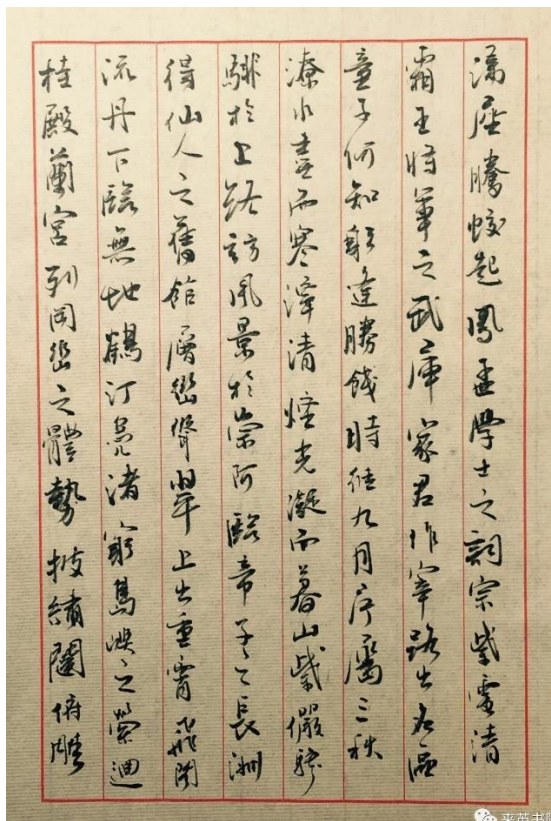 滿座騰蛟起鳳孟學士之詞宗紫電清
霜王將軍之武庫家君作宰路出名區
童子何知躬逢勝餞時維九月序屬三秋
潦水盡而寒潭清煙光凝而暮山紫儼驂
騑於上路訪風景於崇阿臨帝子之長洲
得仙人之舊館層巒聳翠上出重霄飛閣
流丹下臨無地鶴汀鳧渚窮島嶼之縈迴
桂殿蘭宮列岡巒之體勢披繡闥俯雕